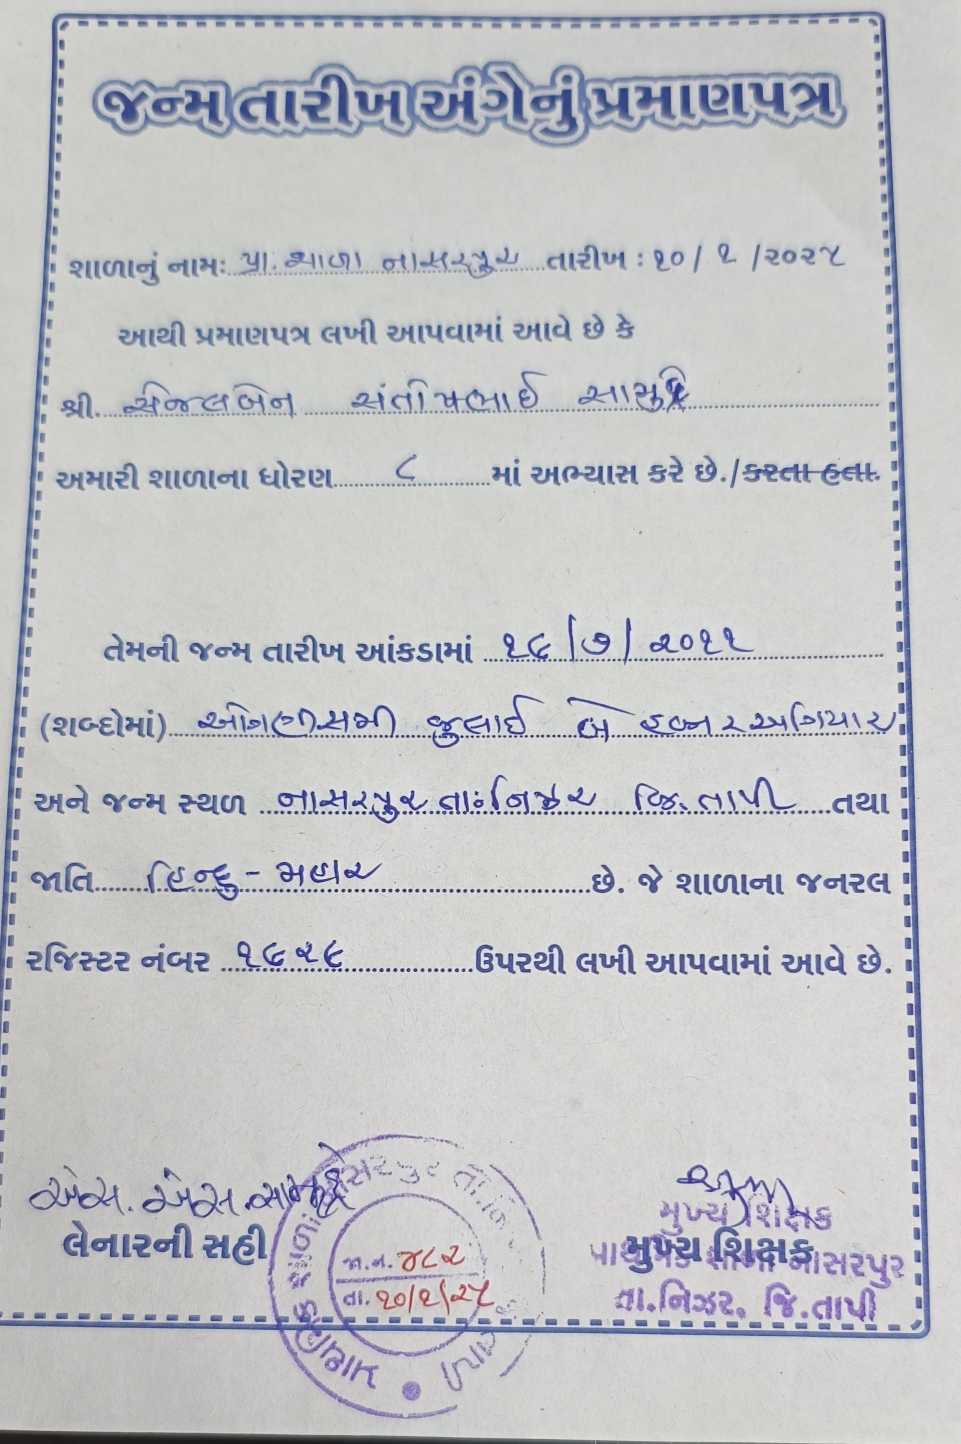 જન્મ તારીખ અંગેનું પ્રમાણપત્ર
શાળાનું નામ: પ્રા. શાળા નાસરપુર તારીખ : ૧૦/ ૧ /૨૦૨૫
આથી પ્રમાણપત્ર લખી આપવામાં આવે છે કે
શ્રી. સેજલબેન સંતોષભાઈ
અમારી શાળાના ધોરણ ૮ માં અભ્યાસ કરે છે./કરતા હતા.
તેમની જન્મ તારીખ આંકડામાં ૧૯/૭/૨૦૧૧
(શબ્દોમાં) ઓગણીસમી જુલાઈ બે હજાર અગિયાર
અને જન્મ સ્થળ નાસરપુર તા. નિઝર જિ. તાપી તથા
જાતિ હિન્દુ - મહાર છે. જે શાળાના જનરલ
રજિસ્ટર નંબર ઉપરથી લખી આપવામાં આવે છે.
એસ. એસ.
લેનારની સહી
મુખ્ય શિક્ષક
મુખ્ય શિક્ષક
નાસરપુર
તા.નિઝર, જિ.તાપી
પ્રાથમિક શાળા નાસરપુર તા.
જા.નં. ૪૮૨
તા. ૧૦/૧/૨૫